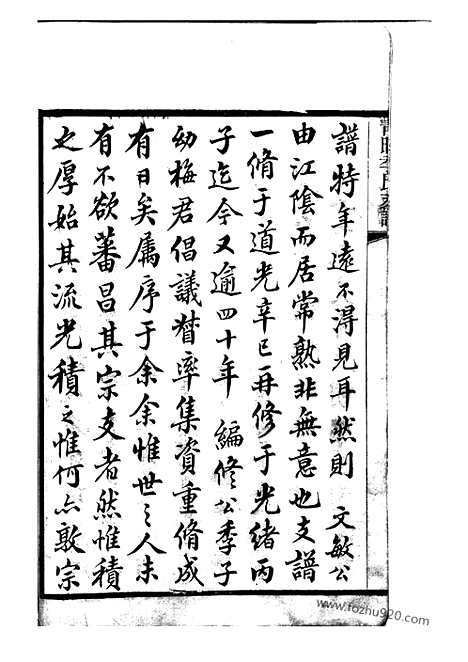 譜特年遠不得見耳然則　文敏公
由江陰而居常熟非無意也支譜
一脩于道光辛巳再修于光緒丙
子迄今又逾四十年　編修公季子
幼梅君倡議督率集資重脩成
有日矣属序于余余惟世之人未
有不欲蕃昌其宗支者然惟積
之厚始其流光積之惟何亦敦宗
www.fozhu920.com